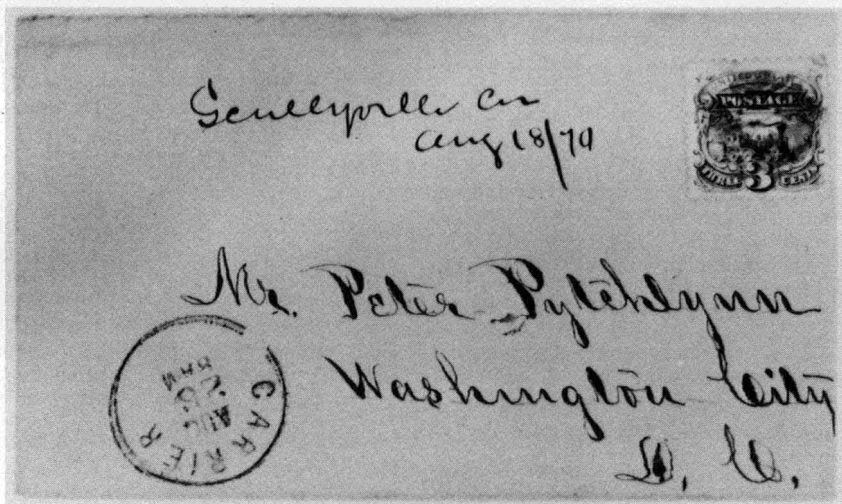 Scullyville CN
Aug 18/70
POSTAGE
THREE 3 CENTS
Mr. Peter Pytchlynn
Washington City
D. C.
CARRIER
AUG
23
8 AM